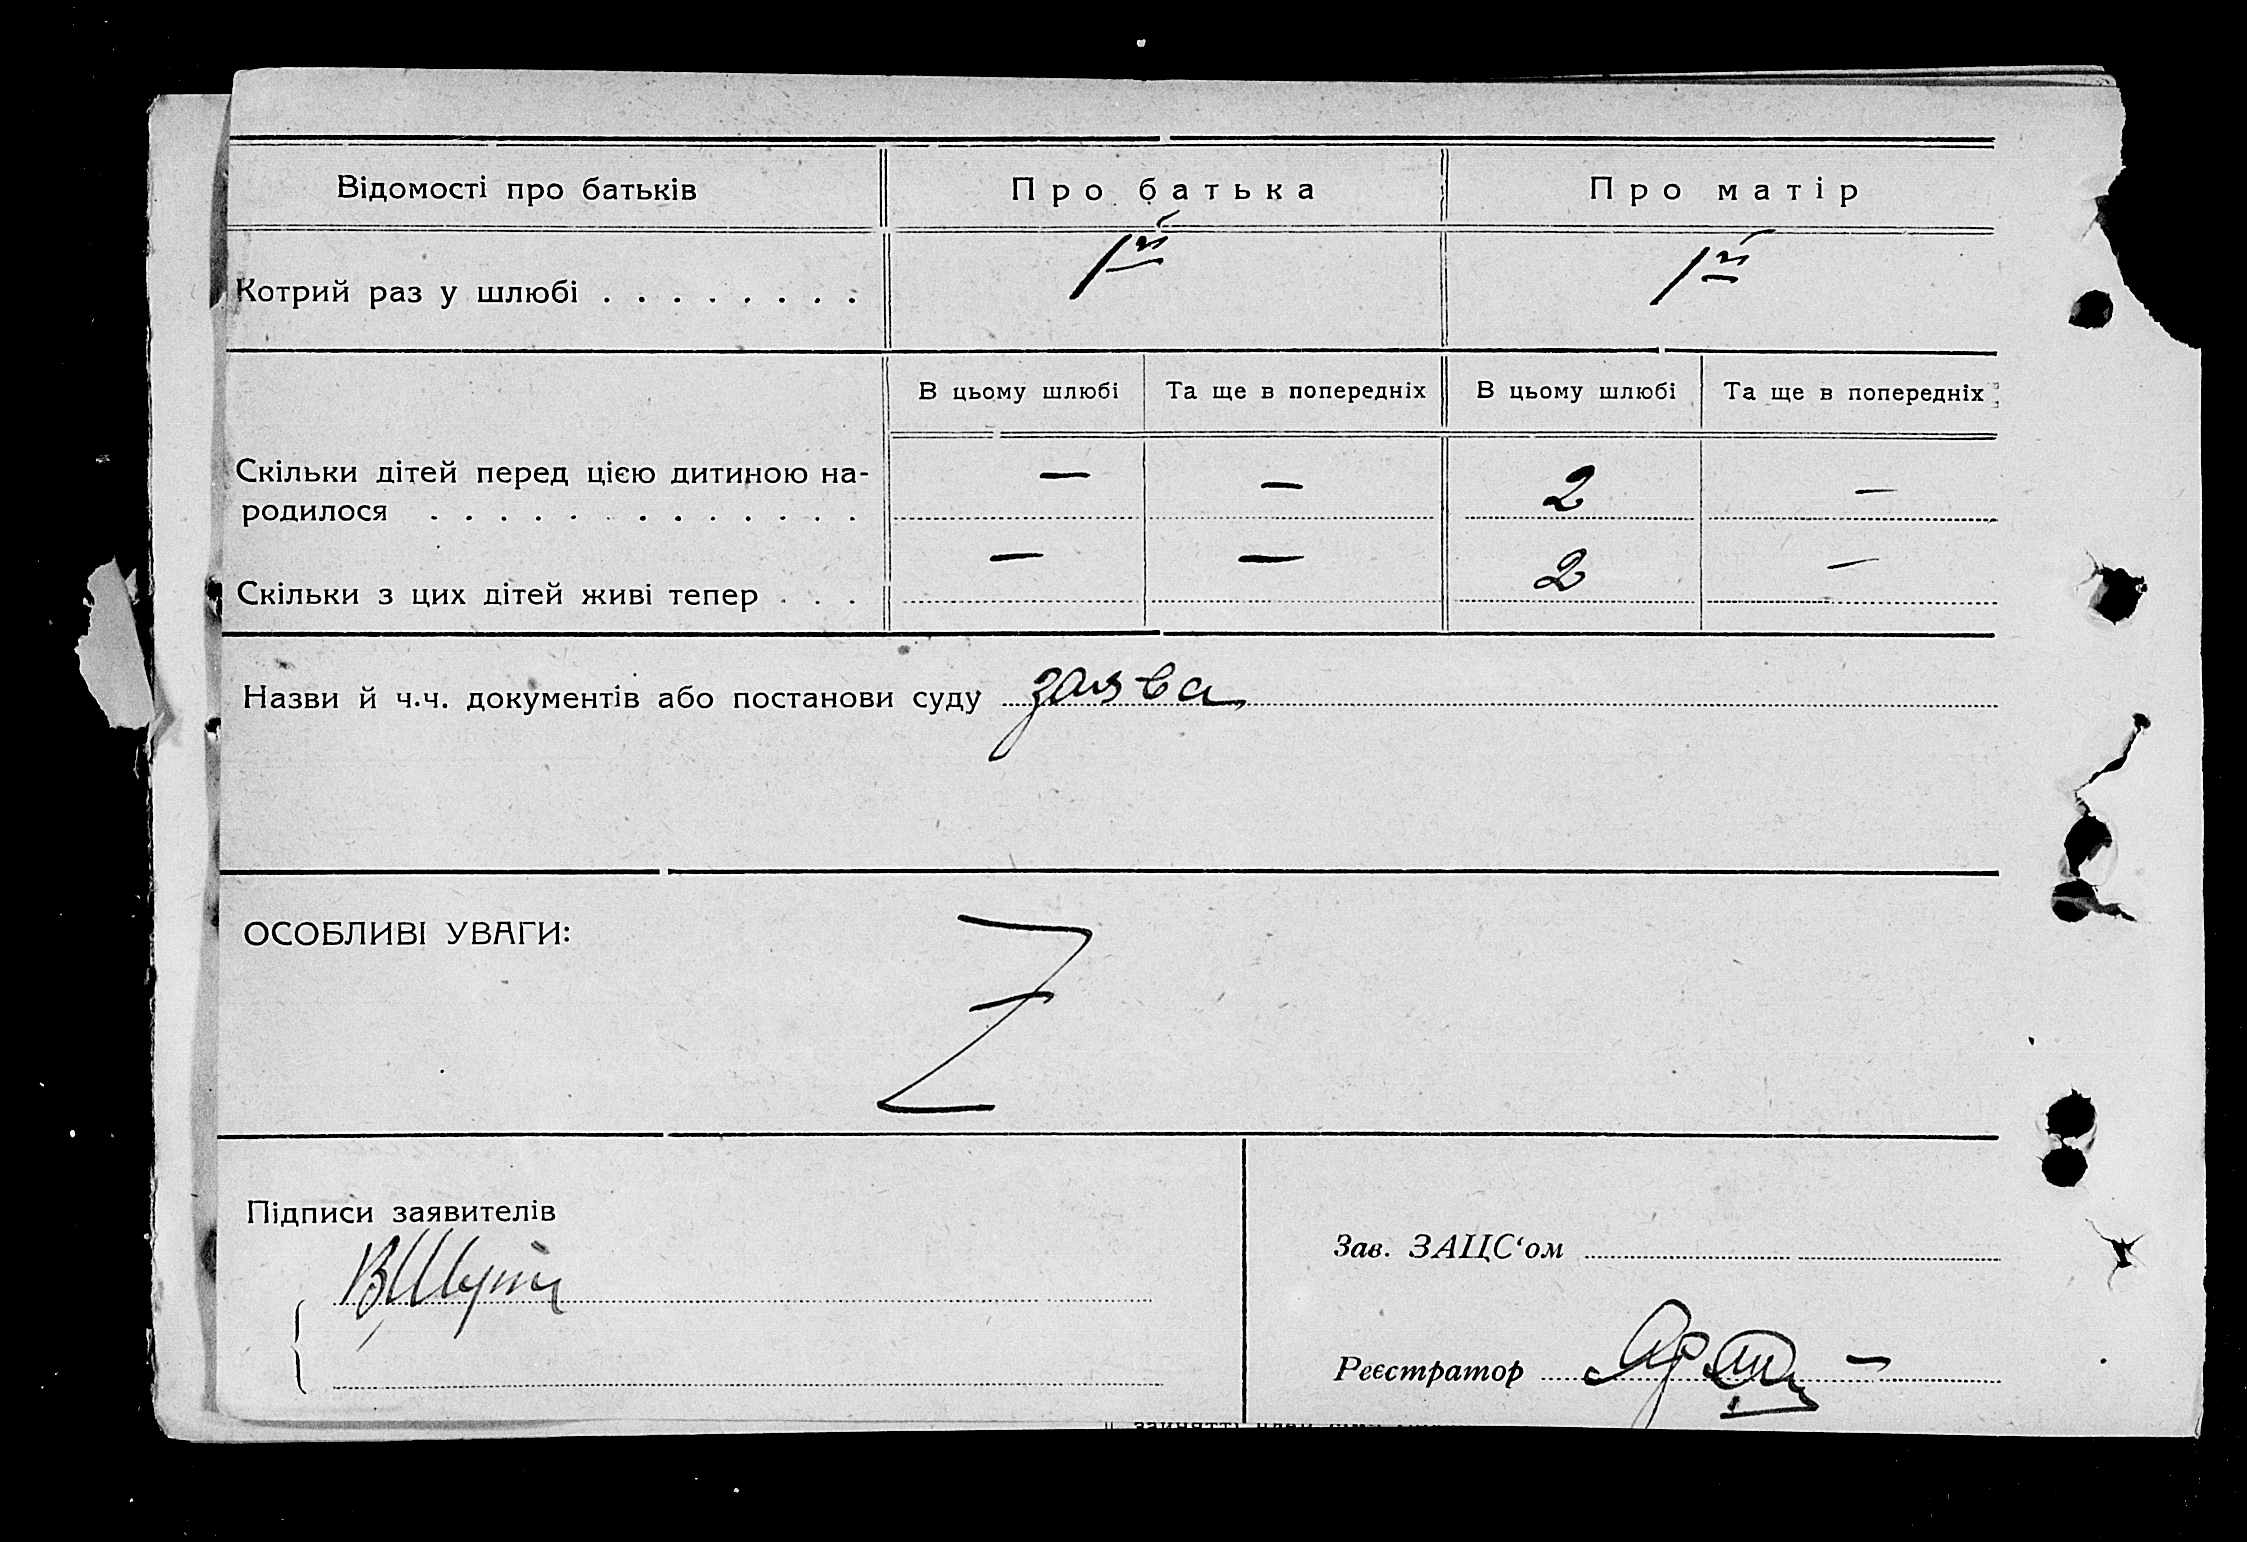 Відомості про батьків Про батька Про матір
Котрий раз у шлюбі . . . . . . . . 1й 1й
В цьому шлюбі Та ще в попередніх В цьому шлюбі Та ще в попередніх
Скільки дітей перед цією дитиною на-
родилося . . . . . . . . . . . . . — — 2 —
Скільки з цих дітей живі тепер . . . — — 2 —
Назви й ч.ч. документів або постанови суду заява
ОСОБЛИВІ УВАГИ:
Z
Підписи заявителів
Зав. ЗАЦС‘ом
Реєстратор